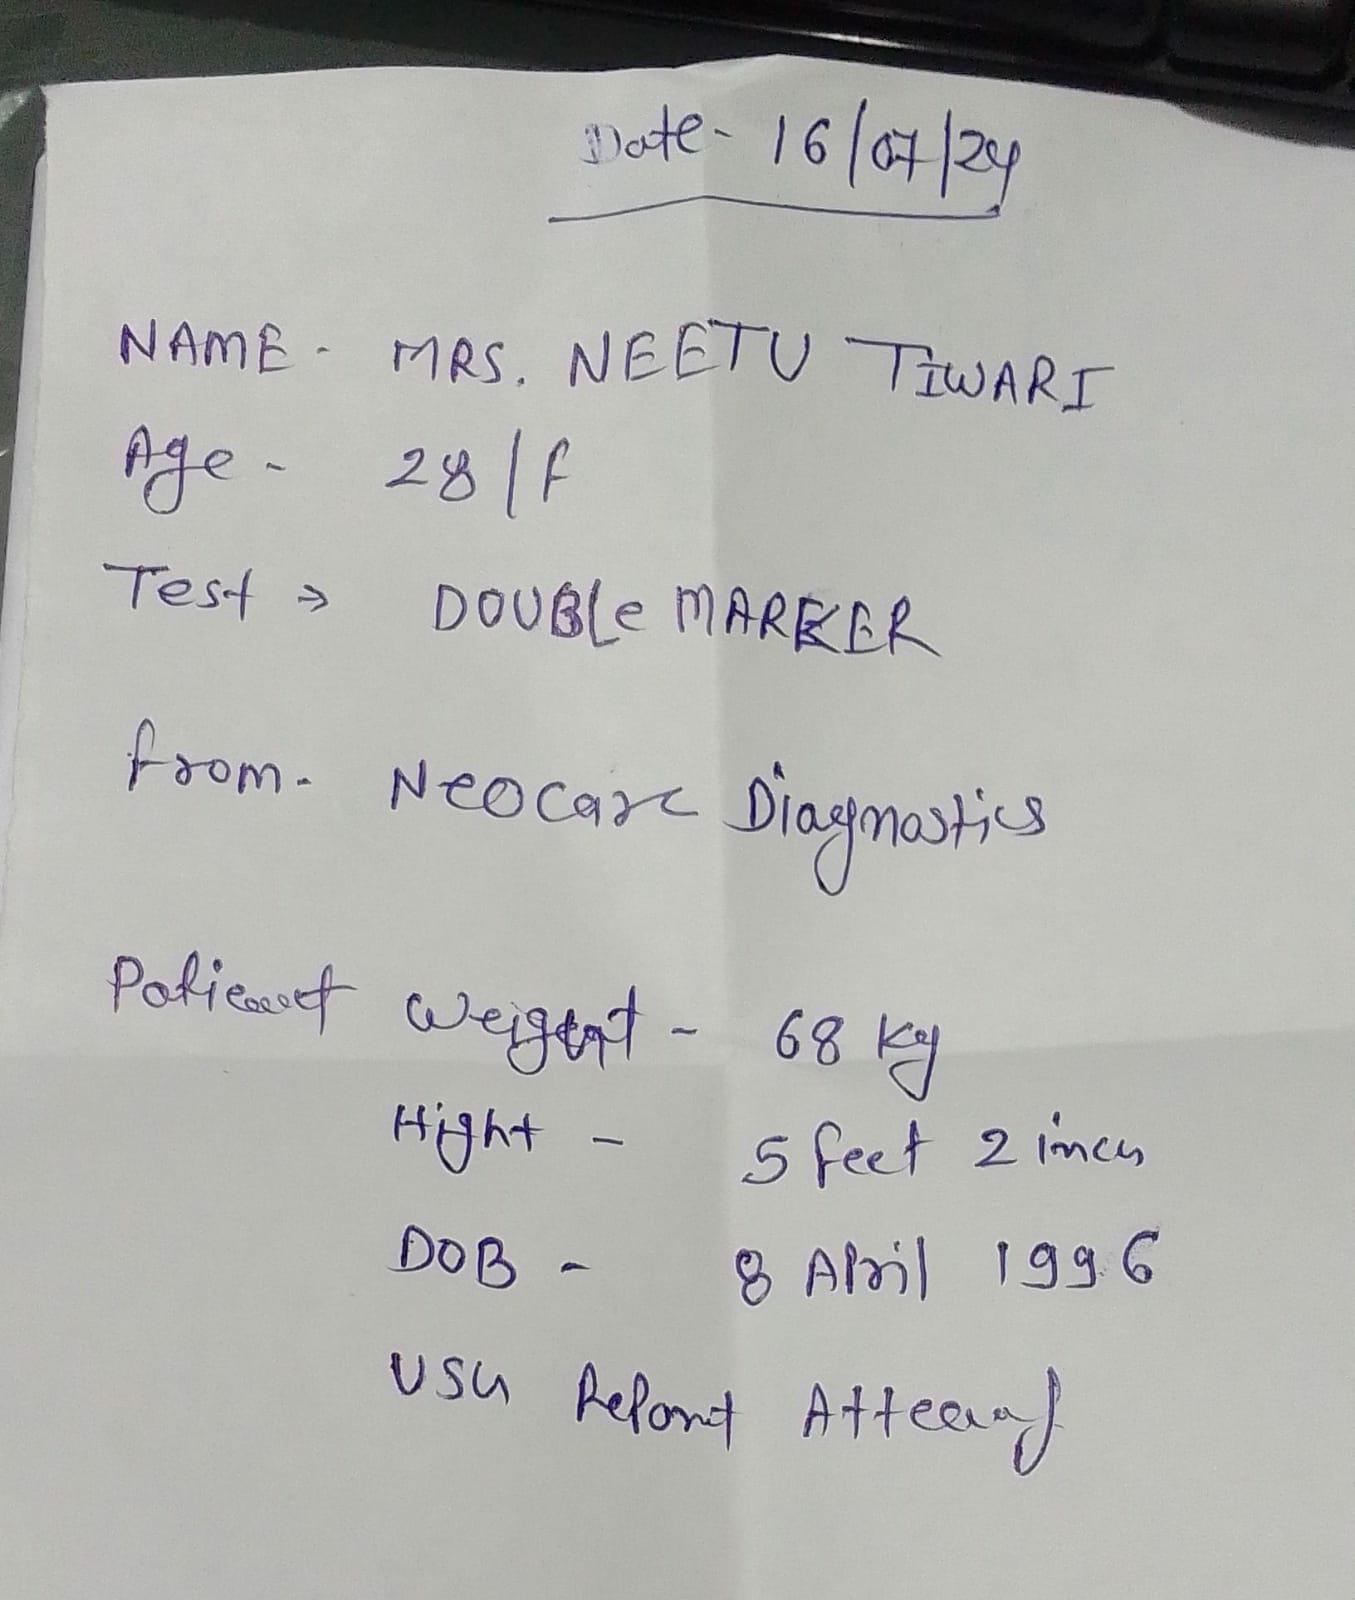 Date - 16/07/24
NAME - MRS. NEETU TIWARI
Age - 28/F
Test → DOUBLe MARKER
from - Neocare Diagnostics
Patient Weight - 68 kg
Hight - 5 feet 2 inch
DOB - 8 April 1996
USG Report